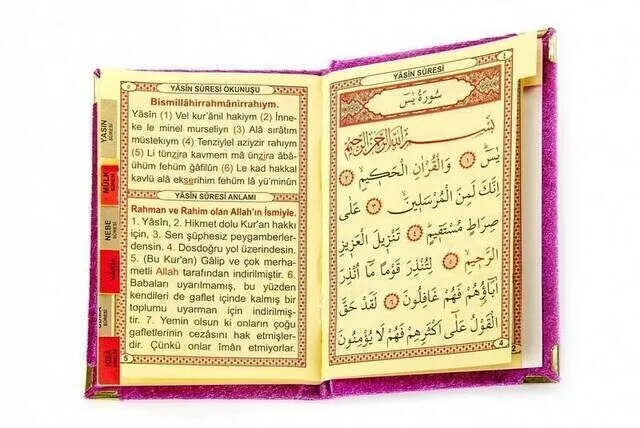 YÂSİN SÛRESİ OKUNUŞU
Bismillâhirrahmânirrahıym.
Yâsîn (1) Vel kur'ânil hakiym (2) İnne-
ke le minel murseliyn (3) Alâ sırâtım
müstekıym (4) Tenziylel aziyzir rahıym
(5) Li tünzira kavmem mâ ünzira âbâ-
ühüm fehüm gâfilûn (6) Le kad hakkal
kavlü alâ ekserihim fehüm lâ yü'minûn
YÂSİN SÛRESİ ANLAMI
Rahman ve Rahim olan Allah'ın İsmiyle.
1. Yâsîn, 2. Hikmet dolu Kur'an hakkı
için, 3. Sen şüphesiz peygamberler-
densin. 4. Dosdoğru yol üzerindesin.
5. (Bu Kur'an) Gâlip ve çok merha-
metli Allah tarafından indirilmiştir. 6.
Babaları uyarılmamış, bu yüzden
kendileri de gaflet içinde kalmış bir
toplumu uyarman için indirilmiş-
tir. 7. Yemin olsun ki onların çoğu
gafletlerinin cezasını hak etmişler-
dir. Çünkü onlar îman etmiyorlar.
5
YASIN
SÛRESİ
MÜLK
SÛRESİ
NEBE
SÛRESİ
KISA
YÂSİN SÛRESİ
سُورَةُ يٰسٓ
بِسْمِ اللّٰهِ الرَّحْمٰنِ الرَّحِيمِ
يٰسٓ ﴿١﴾ وَالْقُرْاٰنِ الْحَكِيمِ ﴿٢﴾
اِنَّكَ لَمِنَ الْمُرْسَلِينَ ﴿٣﴾ عَلٰى
صِرَاطٍ مُسْتَقِيمٍ ﴿٤﴾ تَنْزِيلَ الْعَزِيزِ
الرَّحِيمِ ﴿٥﴾ لِتُنْذِرَ قَوْمًا مَٓا اُنْذِرَ
اٰبَٓاؤُهُمْ فَهُمْ غَافِلُونَ ﴿٦﴾ لَقَدْ حَقَّ
الْقَوْلُ عَلٰٓى اَكْثَرِهِمْ فَهُمْ لَا يُؤْمِنُونَ
4
2